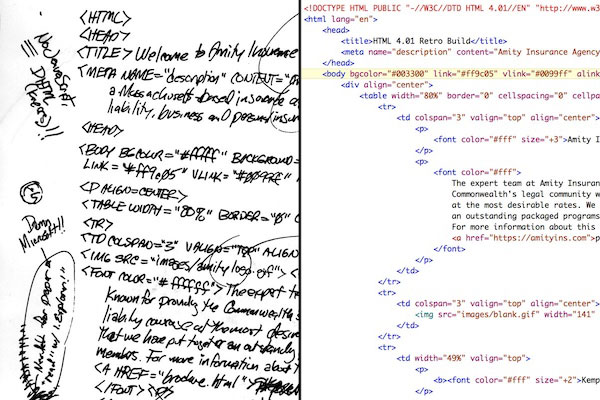 <HTML>
<HEAD>
<TITLE> Welcome to Amity Insurance
<META NAME="description" CONTENT=
a Massachusetts based insurance
liability, business and personal insuran
<HEAD>
<BODY BGCOLOR="#ffffff" BACKGROUND=
LINK="#ff9c05" VLINK=
<P ALIGN=CENTER>
<TABLE WIDTH="80%" BORDER="0"
<TR>
<TD COLSPAN="3" VALIGN="TOP" ALIGN
<IMG SRC="images/amity logo.gif"> <
<FONT COLOR="#ffffff"> The expert
Known for providing the Commonwealth
liability coverage at the most desira
that we have put together an outstanding
members. For more information about
<A HREF="brochure.html">
</FONT> <P>
No Javascript,
DHTML
Damn
Microsoft!!
<!DOCTYPE HTML PUBLIC "-//W3C//DTD HTML 4.01//EN" "http://www.w3
<html lang="en">
<head>
<title>HTML 4.01 Retro Build</title>
<meta name="description" content="Amity Insurance Agency
<body bgcolor="#003300" link="#ff9c05" vlink="#0099ff" alink
<div align="center">
<table width="80%" border="0" cellspacing="0" cellpa
<tr>
<td colspan="3" valign="top" align="center">
<p>
<font color="#fff" size="+3">Amity I
</p>
<p>
<font color="#fff">
The expert team at Amity Insuran
Commonwealth's legal community w
at the most desirable rates. We
an outstanding packaged programs
For more information about this
<a href="https://amityins.com">p
</font>
</p>
</td>
</tr>
<tr>
<td colspan="3" valign="top" align="center">
<img src="images/blank.gif" width="141"
</td>
</tr>
<tr>
<td width="49%" valign="top">
<p>
<b><font color="#fff" size="+2">Kemp
</p>